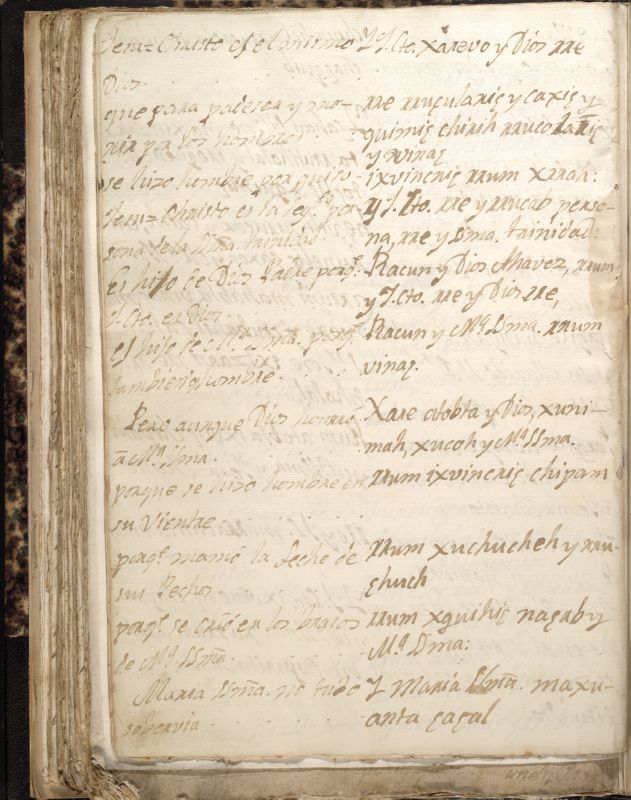 Jesu-Christo es el mismo
Dios.
que para padecer y mo-
rir por los hombres
se hizo hombre, por quiso.
Jesu-Christo es la seg.da per-
sona de la SSma. trinidad.
Es hijo de Dios Padre porq.e
J. Cto. es Dios.
es hijo de M.a SSma. porq.e
tambien es hombre.
Pero aunque Dios honró
a M.a SSma.
porque se hizo hombre en
su Vientre
porq.e mamó la Leche de
sus Pechos
porq.e se crió en los brazos
de M.a SSma.
Maria SSma. no tubo
sobervia.
Y J. Cto. xarevo y Dios rre
rre rruçularię y caxię y
quimię chirih
y winaę
ixvincrię rrum xrrah:
Y J. Cto. rre y rrucab perso-
na, rre y SSma. trinidad:
Racun y Dios Ahavez, rrum
y J. Cto. rre y Dios rre,
Racun y M.a SSma. rrum
vinaę.
Xare obobta y Dios, xuni-
mah, xucoh y M.a SSma.
rrum ixvincrię chipam
rrum xuchucheh y rru-
çhuch
rrum xquihię naçab y
M.a SSma:
Y Maria SSma. maxu-
anta çaçal